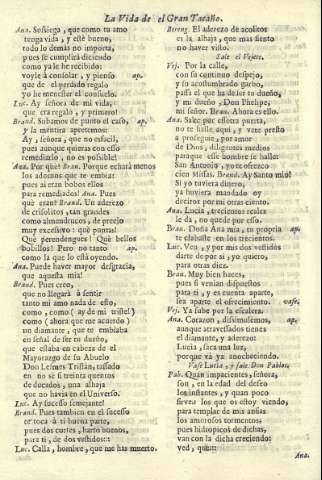 La Vida de el Gran Tacaño.
Ana. Sosiega, que como tu amo
tenga vida, y esté bueno,
todo lo demás no importa,
pues se cumplirá diciendo
como ya le he recibido:
voyle á consolar, y pienso ap.
que de el perdido regalo
yo he menester el consuelo.
Luc. Ay señora de mi vida,
que era regalo, y primero!
Brand. Subamos de punto el caso, ap.
y la mentira apretemos:
Ay, señora, que no es facil,
pues aunque quieras con esso
remediarlo, no es posible!
Ana. Por qué? Bran. Porque echará menos
los adornos que te embiar
pues si eran bobos ellos
para remediados! Ana. Pues
qué eran? Brand. Un aderezo
de crisolitos, tan grandes
como almendrucos, de precio
muy excessivo: qué puntas!
Qué perendengues! Qué bellos
bobillos! Pero no tanto ap.
como la que lo está oyendo.
Ana. Puede haver mayor desgracia,
que aquesta mia!
Brand. Pues creo,
que no llegará á sentir
tanto mi amo nada de esto,
como, como (ay de mi triste!)
como (ahora que me acuerdo)
un diamante, que te embiaba
en señal de ser tu dueño,
que estaba en cabeza de el
Mayorazgo de su Abuelo
Don Lesmes Tristán, tasado
en no sé si treinta quentos
de ducados, una alhaja
que no havia en el Universo.
Luc. Ay sucesso semejante!
Brand. Pues tambien en el sucesso
te toca á ti buena parte,
pues dos cortes, harto buenos,
para ti, de dos vestidos::
Luc. Calla, hombre, que me has muerto.
Bereng. El aderezo de acolitos
es la alhaja, que mas siento
no haver visto.
Sale el Vejete.
Vej. Por la calle,
con su continuo despejo,
y su acostumbrado garbo,
passa el que ha de ser tu dueño,
y mi dueño, Don Phelipe,
mi señor. Bran. Ahora es ello.
Ana. Salte por essotra puerta,
no te halle aqui, y vete presto
á prosegue, por amor
de Dios, diligentes medios
parque esse hombre se halle:
San Antonio, yo te ofrezco
cien Missas. Brand. Ay Santo mio!
Si yo tuviera dinero,
ya huviera mandado oy
deciros por mi otras ciento.
Ana. Lucia, trecientos reales
le da, no quede por esso.
Bran. Doña Ana mia, tu propria ap.
te clavaste en los trecientos.
Luc. Ven, y por mis dos vestidos
darte de por si, yo quiero,
para otras diez.
Bran. Muy bien haces,
pues si venian dispuestos
para ti, y es cuenta aparte,
sea aparte el ofrecimiento. vase.
Vej. Ya sube por la escalera.
Ana. Corazon, dissimulémos, ap.
aunque atravessados tienes
el diamante, y aderezo:
Lucia, saca una luz,
porque vá ya anocheciendo.
Vase Lucia, y sale Don Pablos.
Pab. Quan impacientes, señora,
son, en la edad del deseo
los instantes, y quan poco
sirven los que os estoy viendo,
para templar de mis ansias
los amorosos tormentos:
pues hidropicos de dichas,
van con la dicha creciendo:
ved, quan::
Ana.